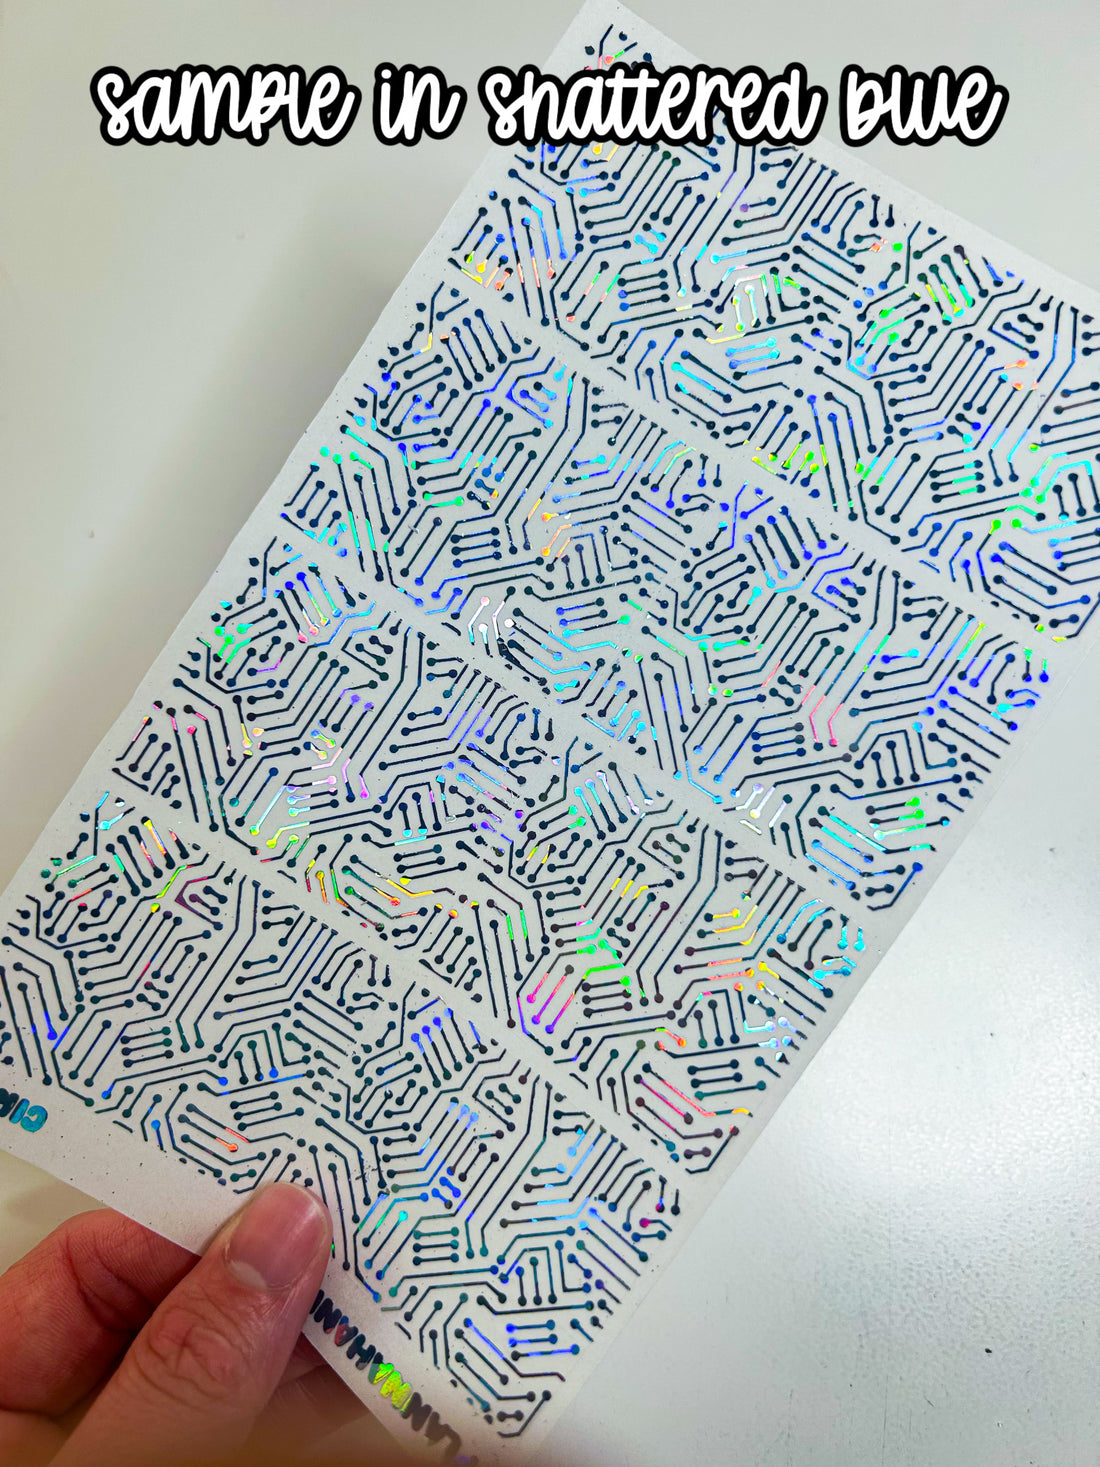 sample in shattered blue